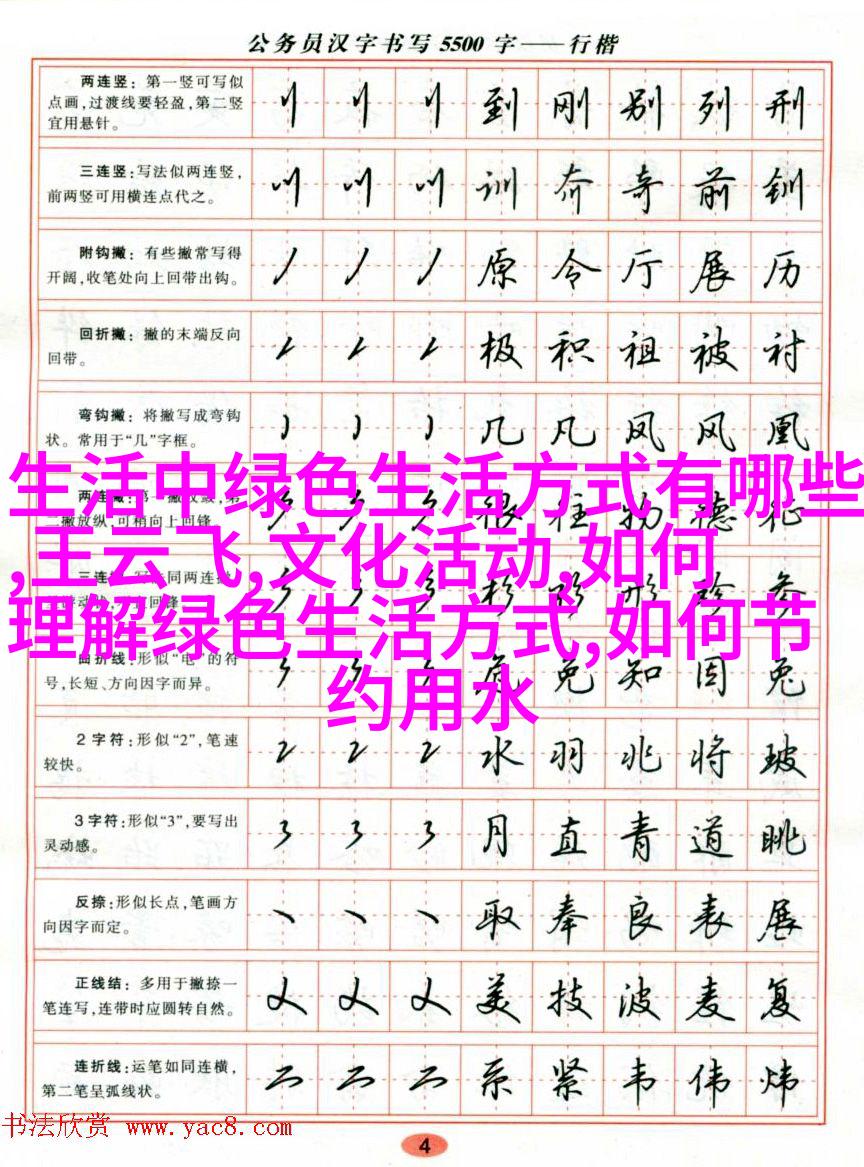 公务员汉字书写5500字——行楷
两连竖：第一竖可写似
点画，过渡线要轻盈，第二竖
宜用悬针。
到 刚 别 列 刑
三连竖：写法似两连竖，
前两竖可用横连点代之。
训 奔 奇 前 钏
附钩撇：有些撇常写得
开阔，收笔处向上回带出钩。
原 令 厅 展 历
回折撇：撇的末端反向
回带。
极 积 祖 被 衬
弯钩撇：将撇写成弯钩
状。常用于“几”字框。
几 凡 凤 风 凰
生活中绿色生活方式有哪些
,王云飞,文化活动,如何
理解绿色生活方式,如何节
约用水
两连撇：第一撇
二撇放纵，可稍向上回锋。
很 往 物 德 征
三连
同两连撇
回锋
形 珍 参
曲折线：形似“电”的符
号，长短、方向因字而异。
免 知 因 兔
2字符：形似“2”，笔速
较快。
2 2 2 水 羽 兆 将 玻
3字符：形似“3”，要写出
灵动感。
3 3 3 月 直 青 道 眺
反捺：形似长点，笔画方
向因字而定。
取 奉 良 表 展
正线结：多用于撇捺一
笔连写，连带时应圆转自然。
美 技 波 麦 复
连折线：运笔如同连横，
第二笔呈弧线状。
系 紧 韦 伟 炜
书法欣赏 www.yac8.com
4